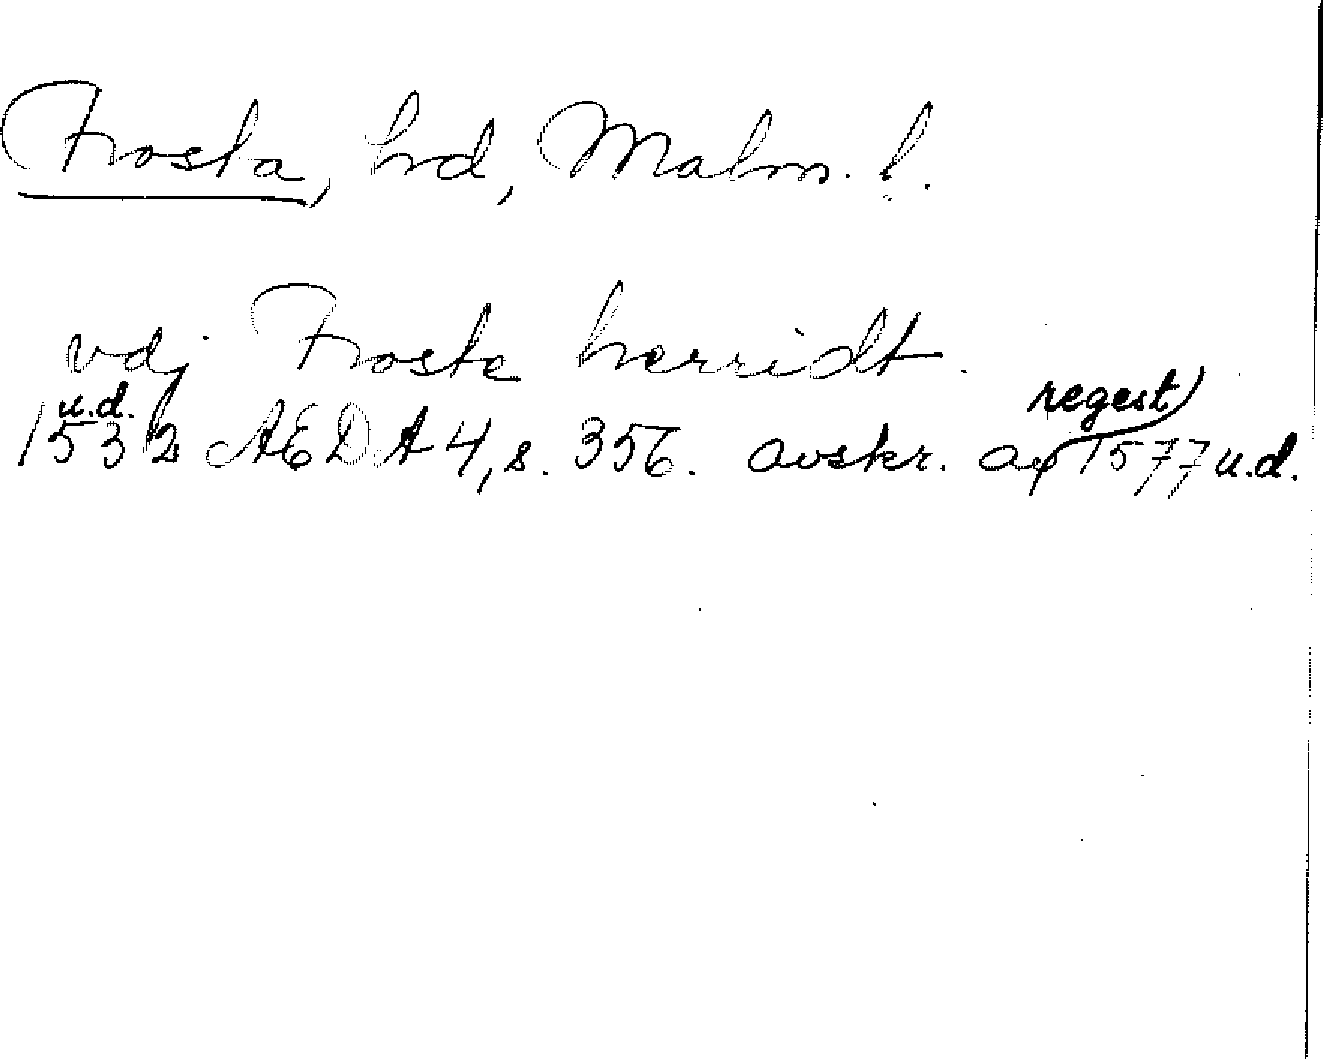 Frosta, hrd, Malm. l.
vdj Froste herridt.
1532 u.d. AEDA 4, s. 356. avskr. av regest 1577 u.d.